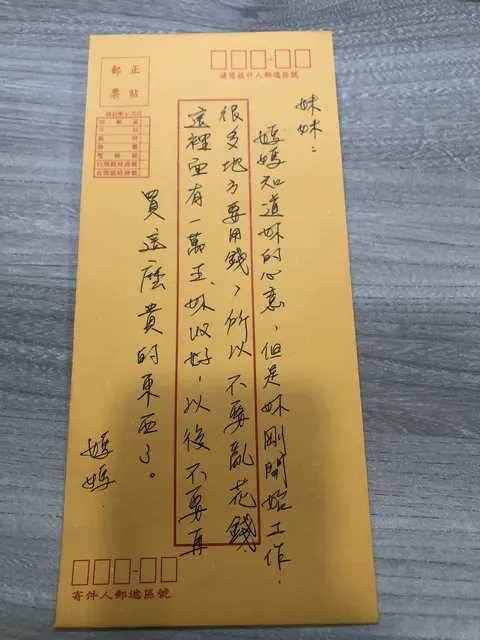 請寫收件人郵遞區號
妹妹：
媽媽知道妳的心意，但是妳剛開始工作．
很多地方要用錢，所以不要亂花錢
這裡面有一萬五、妳收好，以後不要再
買這麼貴的東西了。
媽媽
正貼
郵票
寄件人郵遞區號